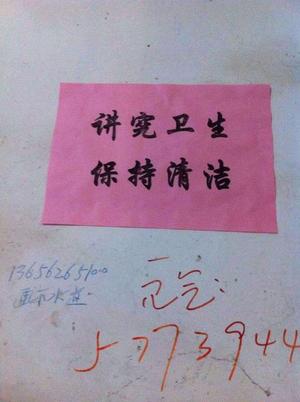 讲究卫生
保持清洁
13656265100
点气:
5773944